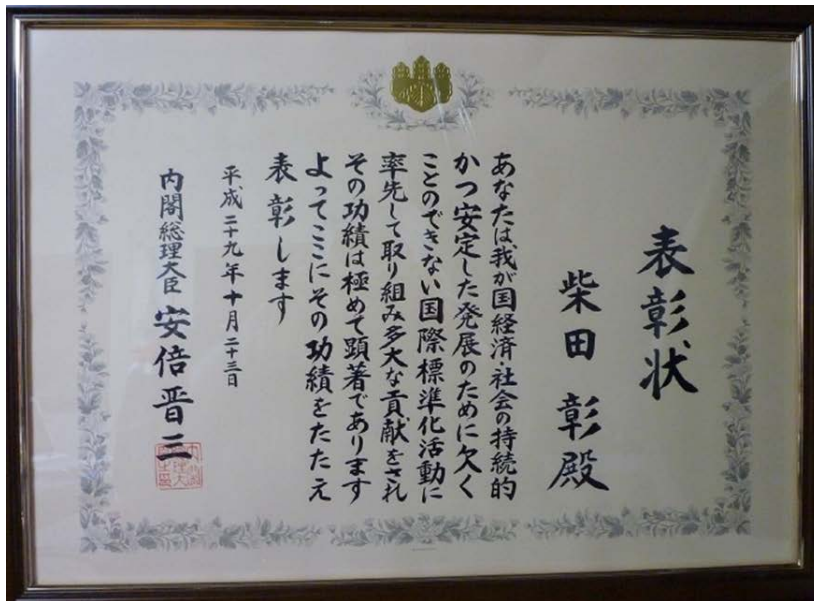 表彰状
柴田 彰殿
あなたは我が国経済社会の持続的
かつ安定した発展のために欠く
ことのできない国際標準化活動に
率先して取り組み多大な貢献をされ
その功績は極めて顕著であります
よってここにその功績をたたえ
表彰します
平成二十九年十月二十三日
内閣総理大臣 安倍晋三